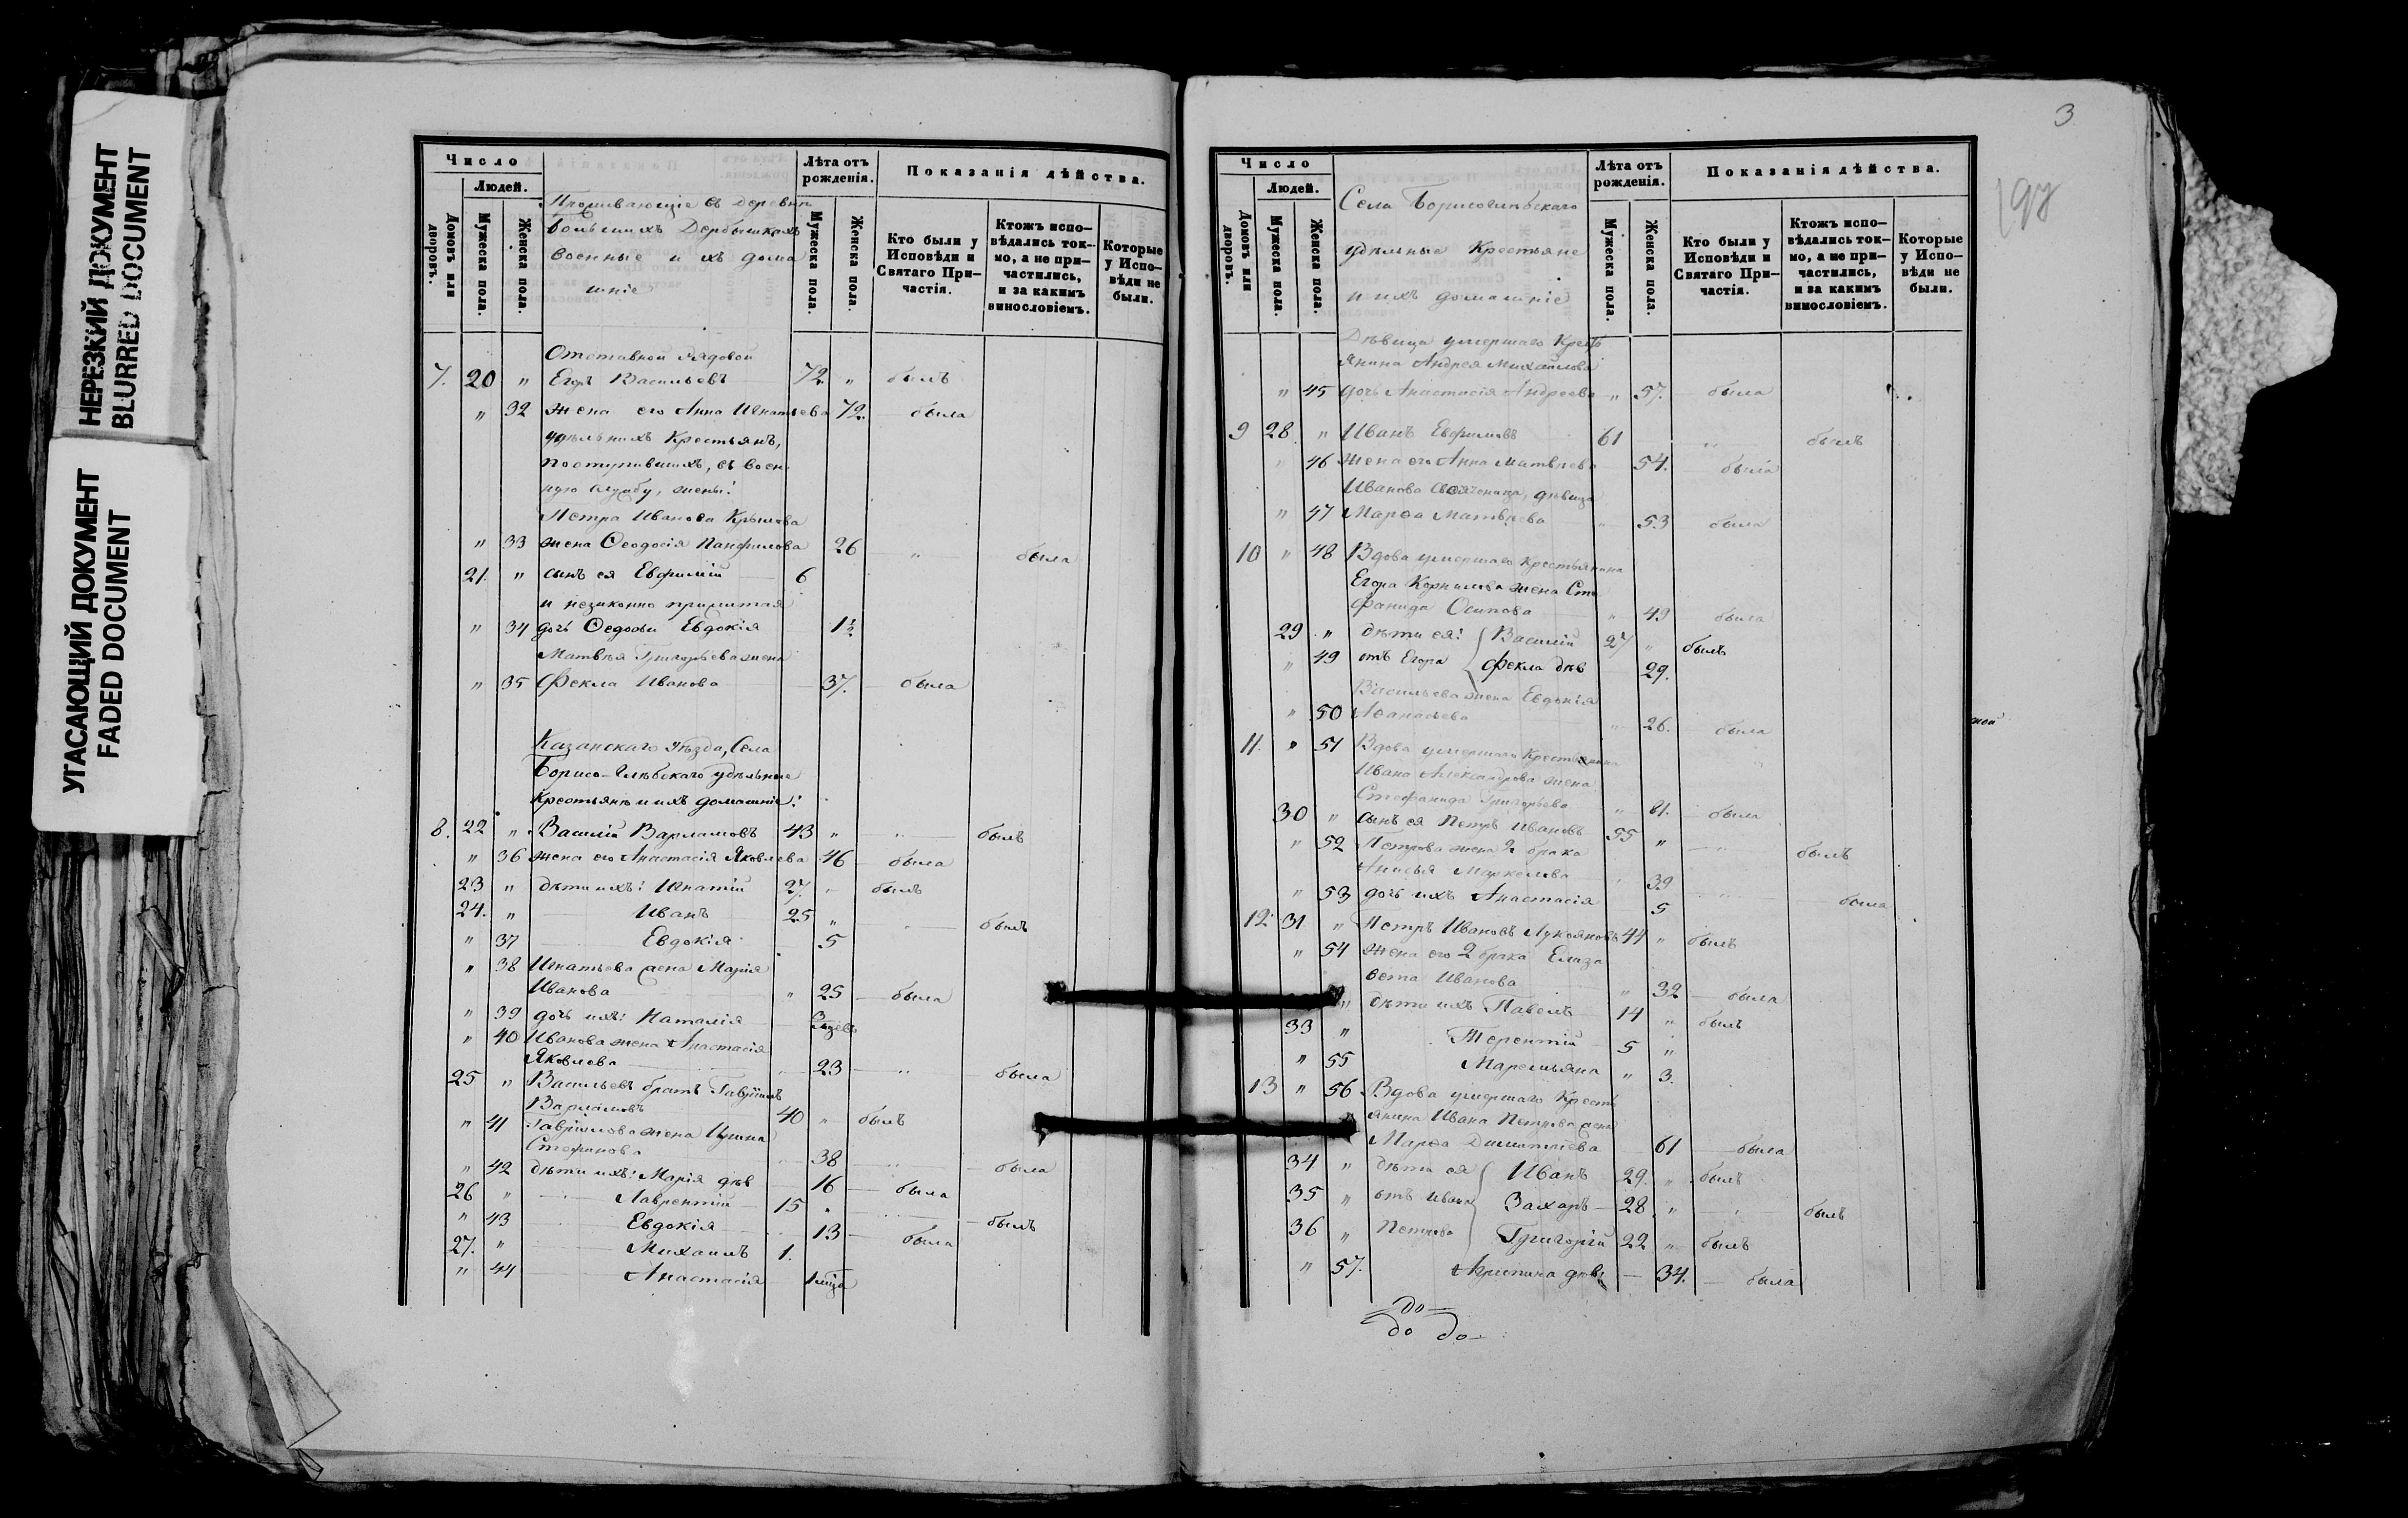 НЕРЕЗКИЙ ДОКУМЕНТ
BLURRED DOCUMENT
УГАСАЮЩИЙ ДОКУМЕНТ
FADED DOCUMENT
Число
Людей.
Домовъ или дворовъ.
Мужеска пола.
Женска пола.
Проживающіе въ деревнѣ
Большихъ Дербышкахъ
Военные и ихъ дома
шніе
Лѣта отъ рожденія.
Мужеска пола.
Женска пола.
Показанія дѣйства.
Кто были у Исповѣди и Святаго При-
частія.
Ктожъ испо-
вѣдались ток-
мо, а не при-
частились,
и за какимъ
винословіемъ.
Которые
у Испо-
вѣди не
были.
Отставной рядовой
7. 20 " Егоръ Васильевъ 72. " былъ
" 32 жена его Анна Игнатьева 72. была
удѣльныхъ Крестьянъ,
поступившихъ, въ воен
ную службу, жены:
Петра Иванова Крылова
" 33 жена Ѳеодосія Панфилова 26 " была
21. " сынъ ея Евфимій 6
и незаконно прижитая
" 34 дочь Ѳедосьи Евдокія 1½
Матвѣя Григорьева жена
" 35 Фекла Иванова 37. была
Казанскаго Уѣзда, Села
Борисо-Глѣбскаго удѣльные
Крестьяне и ихъ домашніе:
8. 22 " Василій Варламовъ 43 " " былъ
" 36 жена его Анастасія Яковлева 46 была
23 " дѣти ихъ: Игнатій 27. " былъ
24. " Иванъ 25 " " былъ
" 37 Евдокія 5
" 38 Игнатьева жена Марія
Иванова " 25 была
" 39 дочь ихъ: Наталія 3
" 40 Иванова жена Анастасія
Яковлева 23 " была
25 " Васильевъ братъ Гавріилъ
Варламовъ 40 " былъ
" 41 Гавріилова жена Ирина
Стефанова 38 " была
" 42 дѣти ихъ: Марія дѣв 16 была
26 " Лаврентій 15 " былъ
" 43 Евдокія 13 была
27. " Михаилъ 1.
" 44 Анастасія 1 мѣца
3
197
Число
Людей.
Домовъ или дворовъ.
Мужеска пола.
Женска пола.
Села Борисоглѣбскаго
удѣльные Крестьяне
и ихъ домашніе
Лѣта отъ рожденія.
Мужеска пола.
Женска пола.
Показанія дѣйства.
Кто были у Исповѣди и Святаго При-
частія.
Ктожъ испо-
вѣдались ток-
мо, а не при-
частились,
и за какимъ
винословіемъ.
Которые
у Испо-
вѣди не
были.
Дѣвица умершаго Кресть
янина Андрея Михайлова
" 45 дочь Анастасія Андреева " 57. была
9 28 " Иванъ Евфимовъ 61 " былъ
" 46 жена его Анна Матвѣева 54. была
Иванова свояченица, дѣвица
" 47 Марѳа Матвѣева " 53 была
10 " 48 Вдова умершаго Крестьянина
Егора Корнилова жена Сте
фанида Осипова " 49 была
29 " дѣти ея: Василій 27 " былъ
" 49 отъ Егора Фекла дѣв 29.
Васильева жена Евдокія
" 50 Аѳанасьева " 26. была
11. " 51 Вдова умершаго Крестьянина
Ивана Александрова жена
Стефанида Григорьева " 81. была
30 " сынъ ея Петръ Ивановъ 55 " " былъ
" 52 Петрова жена 2 брака
Анисья Маркелова " 39 " была
" 53 дочь ихъ Анастасія 5
12. 31. " Петръ Ивановъ Лукояновъ 44 " былъ
" 54 жена его 2 брака Елиза
вета Иванова " 32 была
" дѣти ихъ Павелъ 14 " былъ
33 " Терентій 5 "
" 55 Маремьяна " 3.
13 " 56 Вдова умершаго Кресть
янина Ивана Петрова жена
Марѳа Димитріева 61 была
34 " дѣти ея Иванъ 29. " былъ
35 " отъ Ивана Захаръ 28 " " былъ
36 " Петрова Григорій 22 " былъ
" 57. Христина дѣв 34. была
до
до до